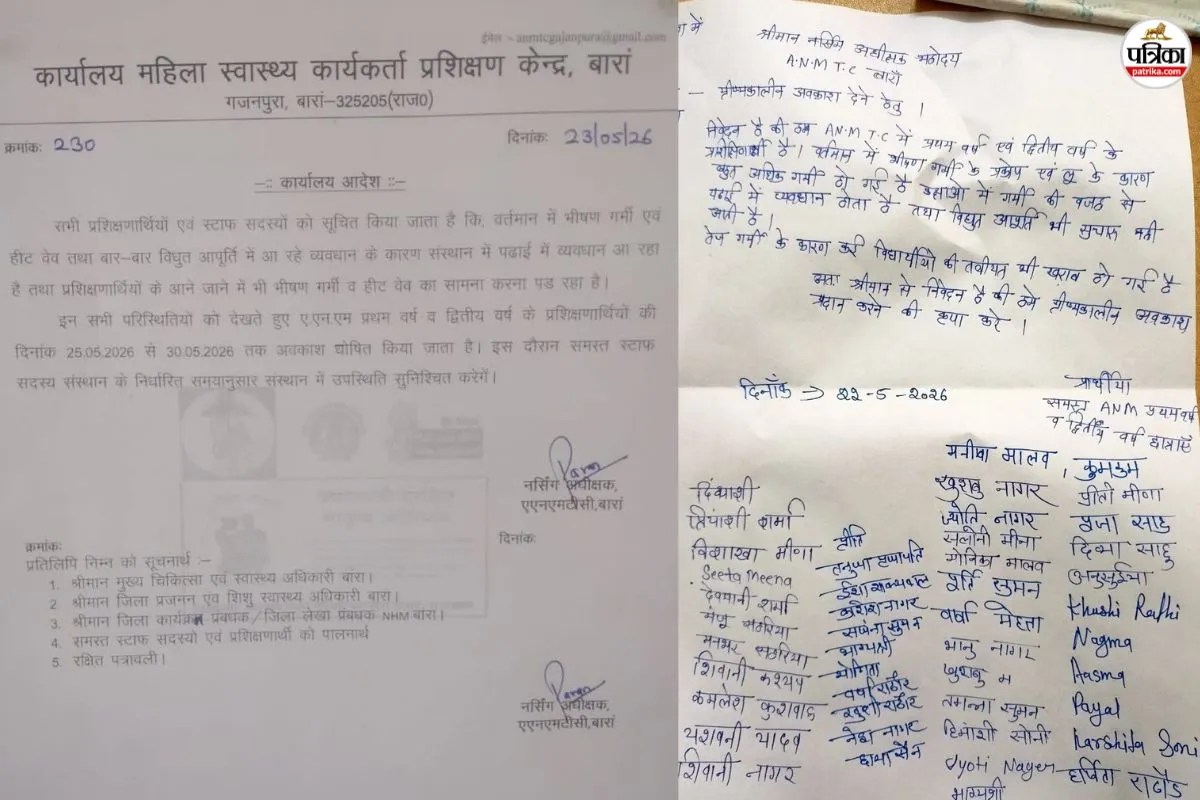 ईमेल :- anmtcgajanpura@gmail.com
कार्यालय महिला स्वास्थ्य कार्यकर्ता प्रशिक्षण केन्द्र, बारां
गजनपुरा, बारां-325205(राज0)
क्रमांकः 230
दिनांकः 23/05/26
-:: कार्यालय आदेश ::-
सभी प्रशिक्षणार्थियों एवं स्टाफ सदस्यों को सूचित किया जाता है कि, वर्तमान में भीषण गर्मी एवं
हीट वेव तथा बार-बार विधुत आपूर्ति में आ रहे व्यवधान के कारण संस्थान में पढाई में व्यवधान आ रहा
है तथा प्रशिक्षणार्थियों के आने जाने में भी भीषण गर्मी व हीट वेव का सामना करना पड रहा है।
इन सभी परिस्थितियों को देखते हुए ए.एन.एम प्रथम वर्ष व द्वितीय वर्ष के प्रशिक्षणार्थियों की
दिनांक 25.05.2026 से 30.05.2026 तक अवकाश घोषित किया जाता है। इस दौरान समस्त स्टाफ
सदस्य संस्थान के निर्धारित समयानुसार संस्थान में उपस्थिति सुनिश्चित करेगें।
नर्सिंग अधीक्षक,
एएनएमटीसी,बारां
क्रमांकः
दिनांकः
प्रतिलिपि निम्न को सूचनार्थ :-
1. श्रीमान मुख्य चिकित्सा एवं स्वास्थ्य अधिकारी बारां।
2. श्रीमान जिला प्रजमन एंव शिशु स्वास्थ्य अधिकारी बारां।
3. श्रीमान जिला कार्यक्रम प्रबंधक/जिला लेखा प्रंबधक NHM बारां।
4. समस्त स्टाफ सदस्यो एवं प्रशिक्षणार्थी को पालनार्थ
5. रक्षित पत्रावली।
नर्सिंग अधीक्षक,
एएनएमटीसी,बारां
पत्रिका
patrika.com
में
श्रीमान नर्सिंग अधीक्षक महोदय
A.N.M T.C बारां
- ग्रीष्मकालीन अवकाश देने हेतु।
निवेदन है की हम A.N.M T.C में प्रथम वर्ष एवं द्वितीय वर्ष के
है। वर्तमान में भीषण गर्मी के प्रकोप एवं लू के कारण
बहुत अधिक गर्मी हो गई है कक्षाओ में गर्मी की वजह से
पढाई में व्यवधान होता है तथा विधुत आपूर्ति भी सुचारू नही
जाती है।
तेज गर्मी के कारण कई विद्यार्थीयो की तबीयत भी खराब हो गई है
अतः श्रीमान से निवेदन है की हमे ग्रीष्मकालीन अवकाश
प्रदान करने की कृपा करे।
दिनाँक → 22-5-2026
प्रार्थीया
समस्त ANM प्रथम वर्ष
व द्वितीय वर्ष छात्राएं
मनीषा मालव, कुमकुम
दिव्याशी
खुशबु नागर
प्रीती मीणा
शर्मा
ज्योति नागर
पूजा साहु
विशाखा मीणा
प्रीति
सलोनी मीना
दिव्या साहु
Seeta Meena
मोनिका मालव
अनुसुईया
देवयानी शर्मा
पूर्ति सुमन
Khushi Rathi
मंजू सहरिया
सुमन
वर्षा मेहता
Nagma
मनभर सहरिया
भाग्यश्री
भानु नागर
Aasma
शिवानी कश्यप
योगिता
खुशबु म
Payal
कमलेश कुशवाह
वर्षा राठौर
खुशी राठौर
तमन्ना सुमन
Harshita Soni
यशवनी यादव
नेहा नागर
हिमांशी सोनी
शिवानी नागर
छाया सेन
Jyoti Nager
हर्षिता राठौड
भाग्यश्री